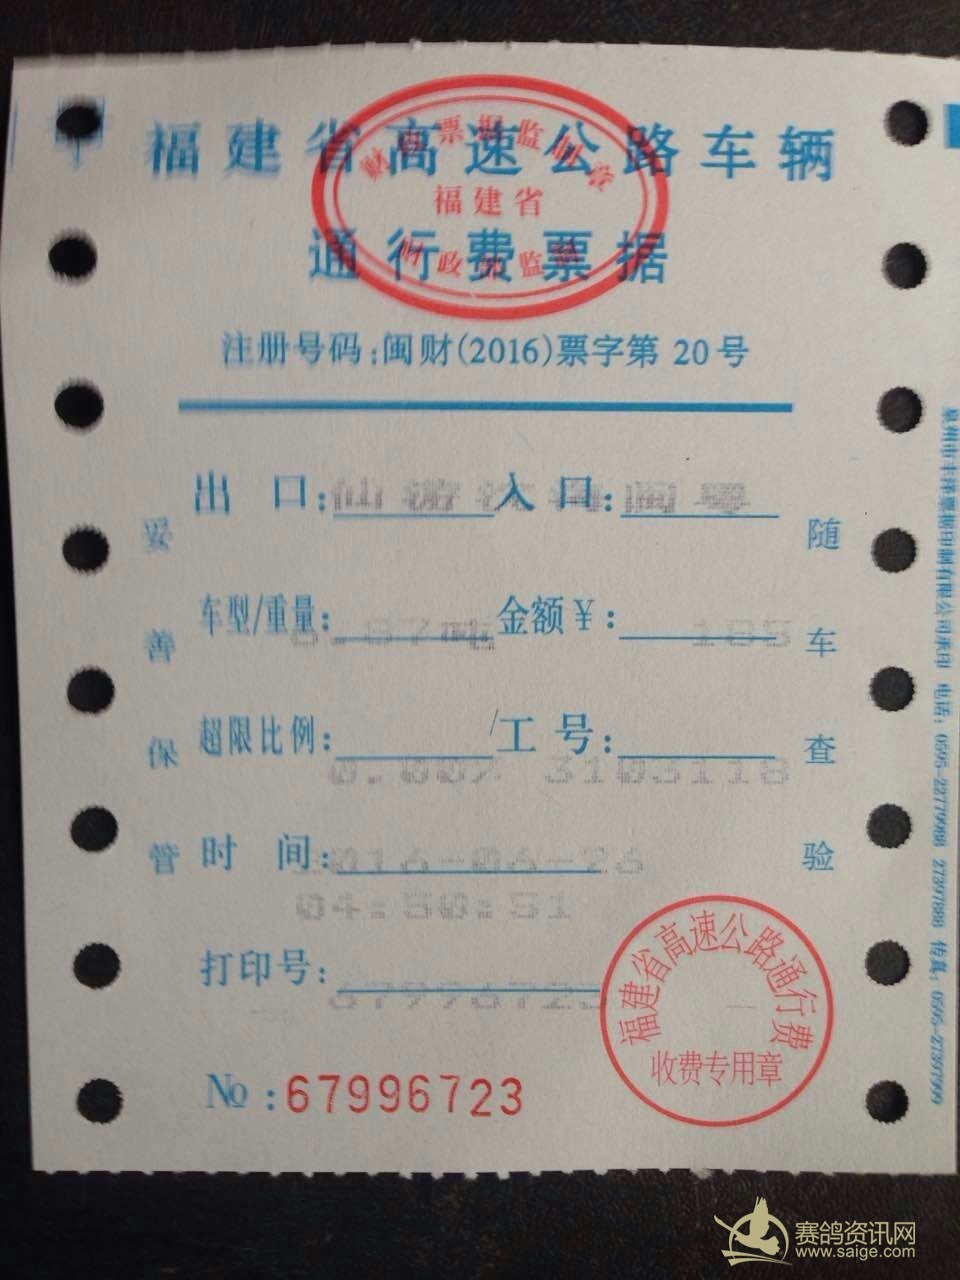 福建省高速公路车辆
通行费票据
福建省
注册号码:闽财(2016)票字第 20号
出 口: 仙游沈海 入 口: 闽粤
车型/重量: 吨 金额￥: 185
超限比例: 0.00% 工 号: 3103118
时 间: 2016-06-26
04:50:51
打印号: 67996723
No : 67996723
妥善保管
随车查验
福建省高速公路通行费
收费专用章
泉州市丰泽票据印制有限公司承印 电话: 0595-22779988 27397888 传真: 0595-27397999
赛鸽资讯网
www.saige.com